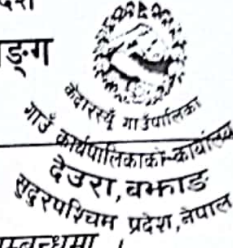 ङ्ग
केदारस्यूँ गाउँपालिका
गाउँ कार्यपालिकाको कार्यालय
देउरा, बझाङ
सुदुरपश्चिम प्रदेश, नेपाल